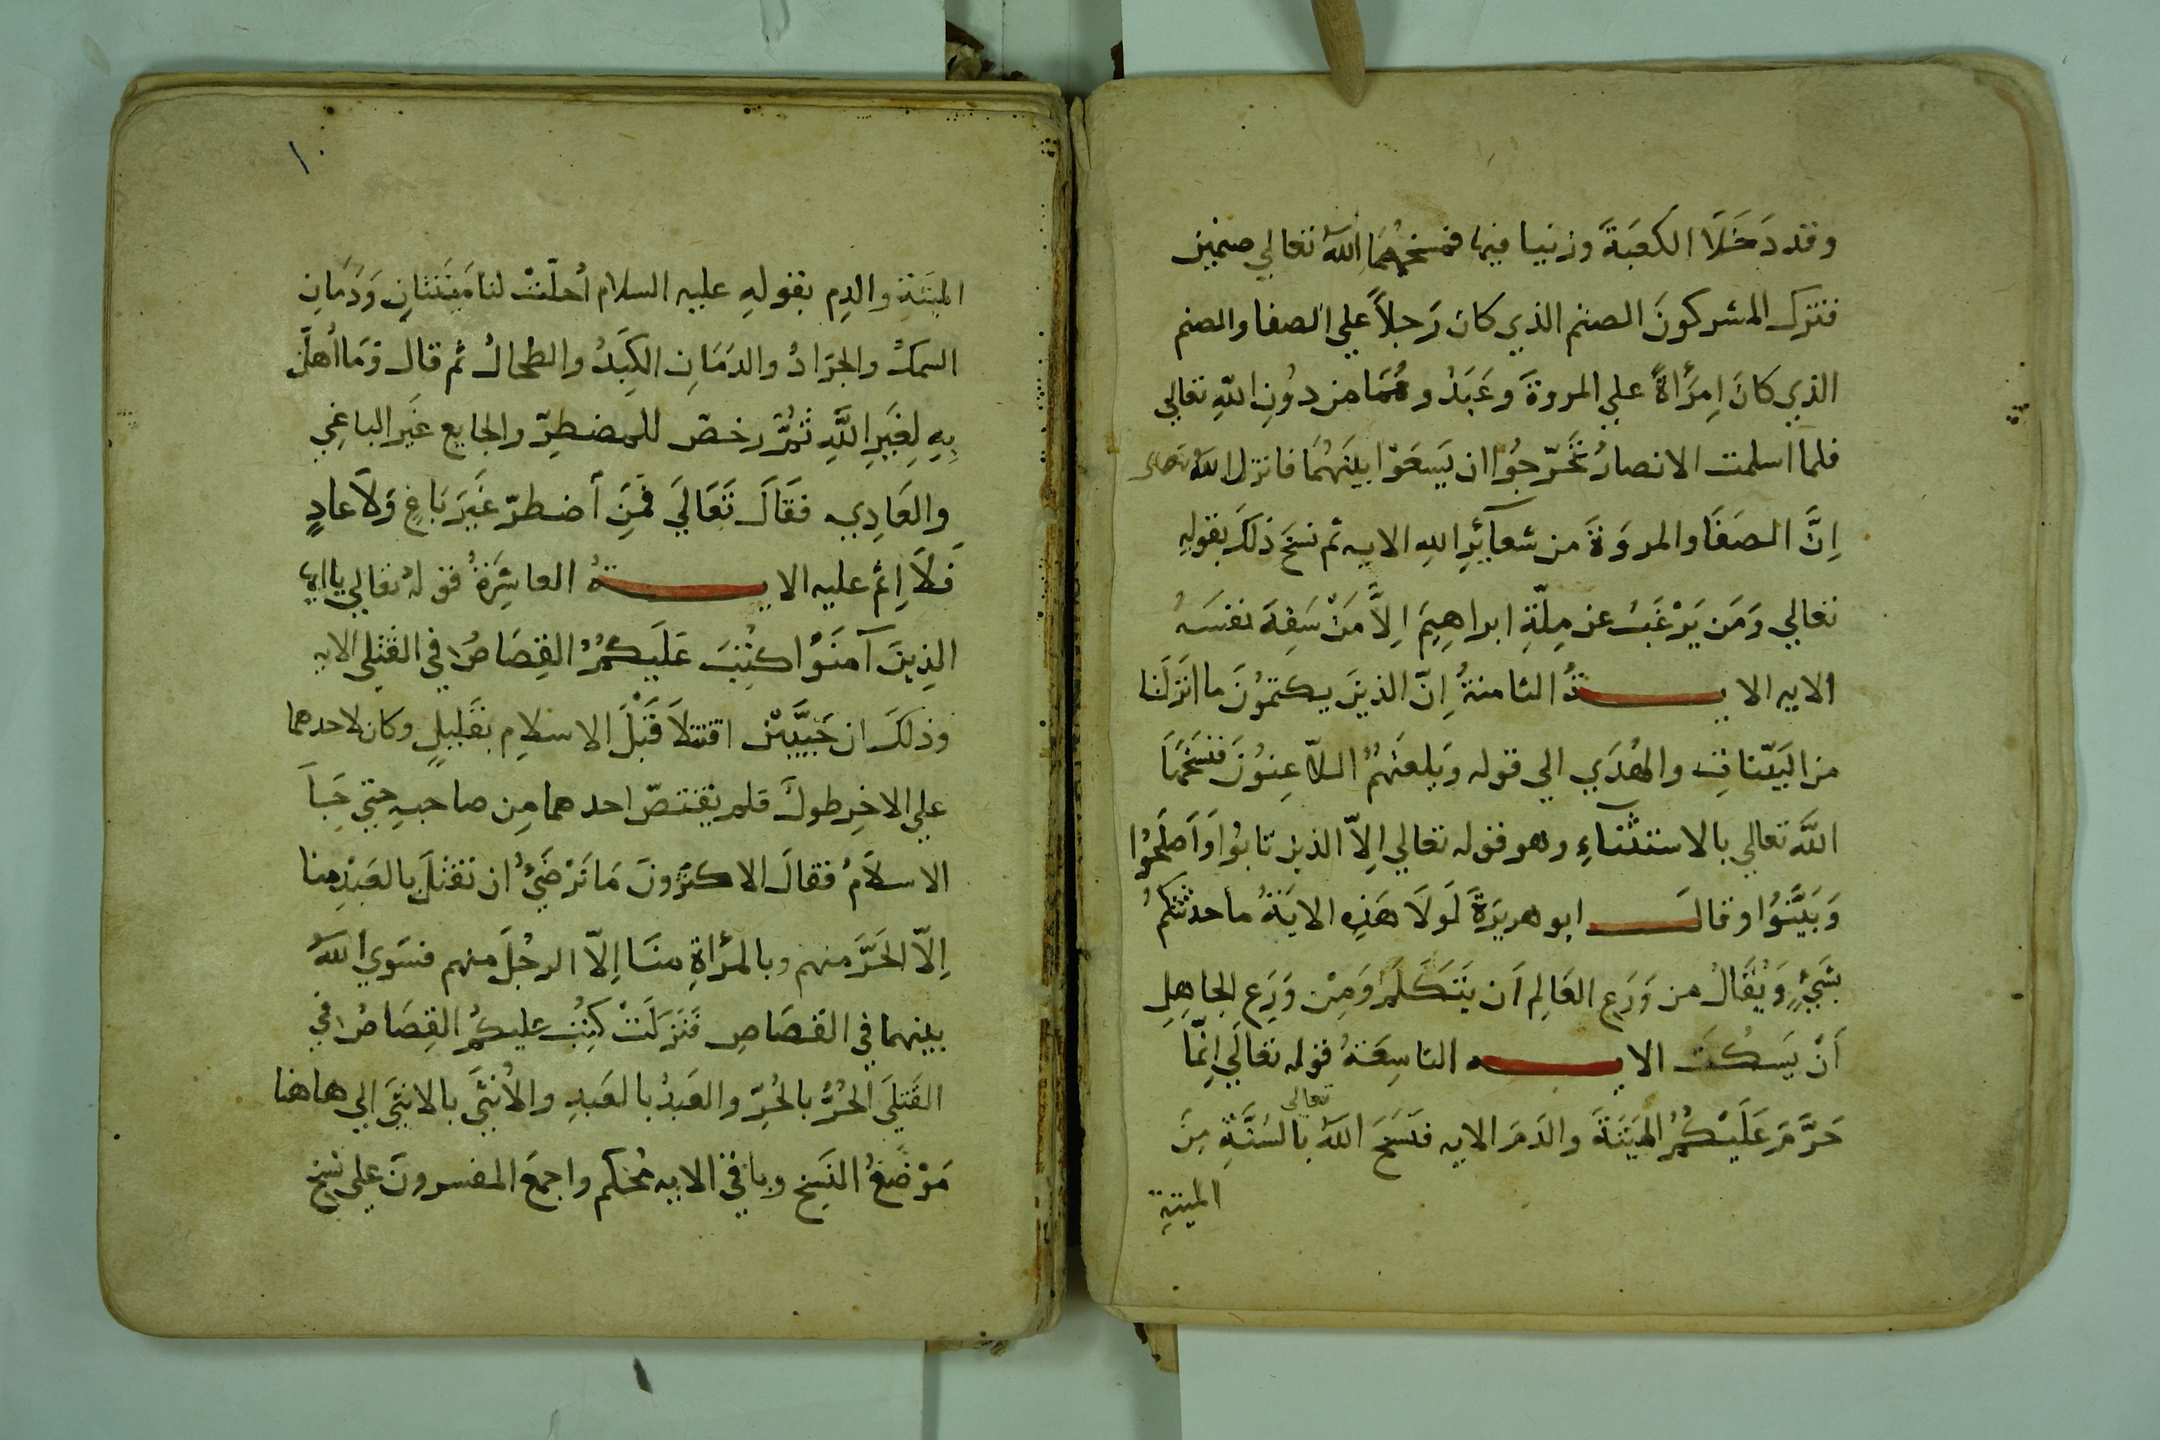 وقد دَخَلَا الكعبَةَ وزنيا فيها فمسخهُمَا اللهُ تعالي صنمين
فترك المشركونَ الصنم الذي كان رَجلاً علي الصفا والصنم
الذي كانَ اِمرَأةً علي المروةَ وعَبَدُوهُمَا من دوُنِ اللهِ تعالي
فلما اسلمت الانصارُ تحَرّجوُا ان يَسعَوْا بينَهُمَا فانزل اللهُ تعالى
اِنَّ الصَفَا والمروَةَ من شعآئرِ اللهِ الايه ثم نسخَ ذَلكَ بقولهِ
تعالي وَمَن يَرْغَبُ عن مِلّةِ ابراهِيمَ اِلاَّ مَنْ سَفِهَ نفسَهُ
الايه الايـــــةُ الثامنةُ اِنّ الذينَ يكتموُنَ ما انَزلنَا
من البَيّناتِ والهُدَي الي قوله وَيلعَنهُمُ اللاّعِنوُنَ فنسَخَهَا
اللَّه تعالي بالاستثنَآءِ وهو قوله تعالي اِلاّ الذين تابوُا وَاَصلَحوُا
وَبَيَّنوُا وقالــــ ابو هريرَةَ لَولَا هَذِهِ الايَةُ ما حدثتكمُ
بشَيْءٍ وَيُقَالُ من وَرَعِ العَالِمِ اَن يَتَكَلمَ وَمِنْ وَرَعِ الجاهِلِ
اَنْ يَسكُتَ الايـــــه التاسِعَةُ قوله تعَالَي اِنّمَا
حَرَّمَ عَلَيْكُمُ المَيتَةَ والدَمَ الايه فنَسَخَ اللهُ تعالى بالسُنَّةِ مِنَ
الميتةِ
١٠
الميَتةِ والدِم بقولهِ عليه السلام اُحلّتْ لنا مَيتَتانِ وَدَمَانِ
السمكُ والجَرَادُ والدَمَانِ الكِبَدُ والطحالُ ثم قال وَمَا اُهلّ
بِهِ لِغَيرِ اللَّهِ ثُمَّ رخصّ للمضطِرّ والجايع غَير الباغِي
والعَادِي فقَالَ تَعَالَي فَمَنِ اَضطرّ غَيرَ بَاغٍ وَلَا عادٍ
فَلَا اِثم عليه الايـــــةُ العاشِرَةُ قولهُ تعالي يا ايها
الذِينَ آمنَوُا كتُبَ عَلَيكُمُ القِصَاصُ في القَتلي الايه
وذلكَ ان حَيّيَنْ اقتتلاَ قَبْلَ الاسلامِ بقَليلٍ وكان لاحدهما
علي الاخِر طَولٌ فلم يقتصّ احدهما مِن صاحبهِ حتيّ جَآ
الاسلاَمُ فقالَ الاكثروُنَ مَا نَرْضَيُ ان نقتُلَ بالعَبْدِ منا
اِلاّ الحَرَّ منهم وبالمرأةِ منَا اِلاّ الرجُلَ منهم فسَوي اللهُ
بينهما في القصَاصِ فَنَزلَتْ كتُبَ عليكمُ القِصَاصُ في
القَتليَ الحُرُّ بالحُرِّ والعَبدُ بالعَبدِ والاُنثَي بالانثيَ الي هاهنا
مَوْضَعُ النَسِخ وباقيْ الايه مُحكم واجمعَ المفسرونَ علي نسَخِ